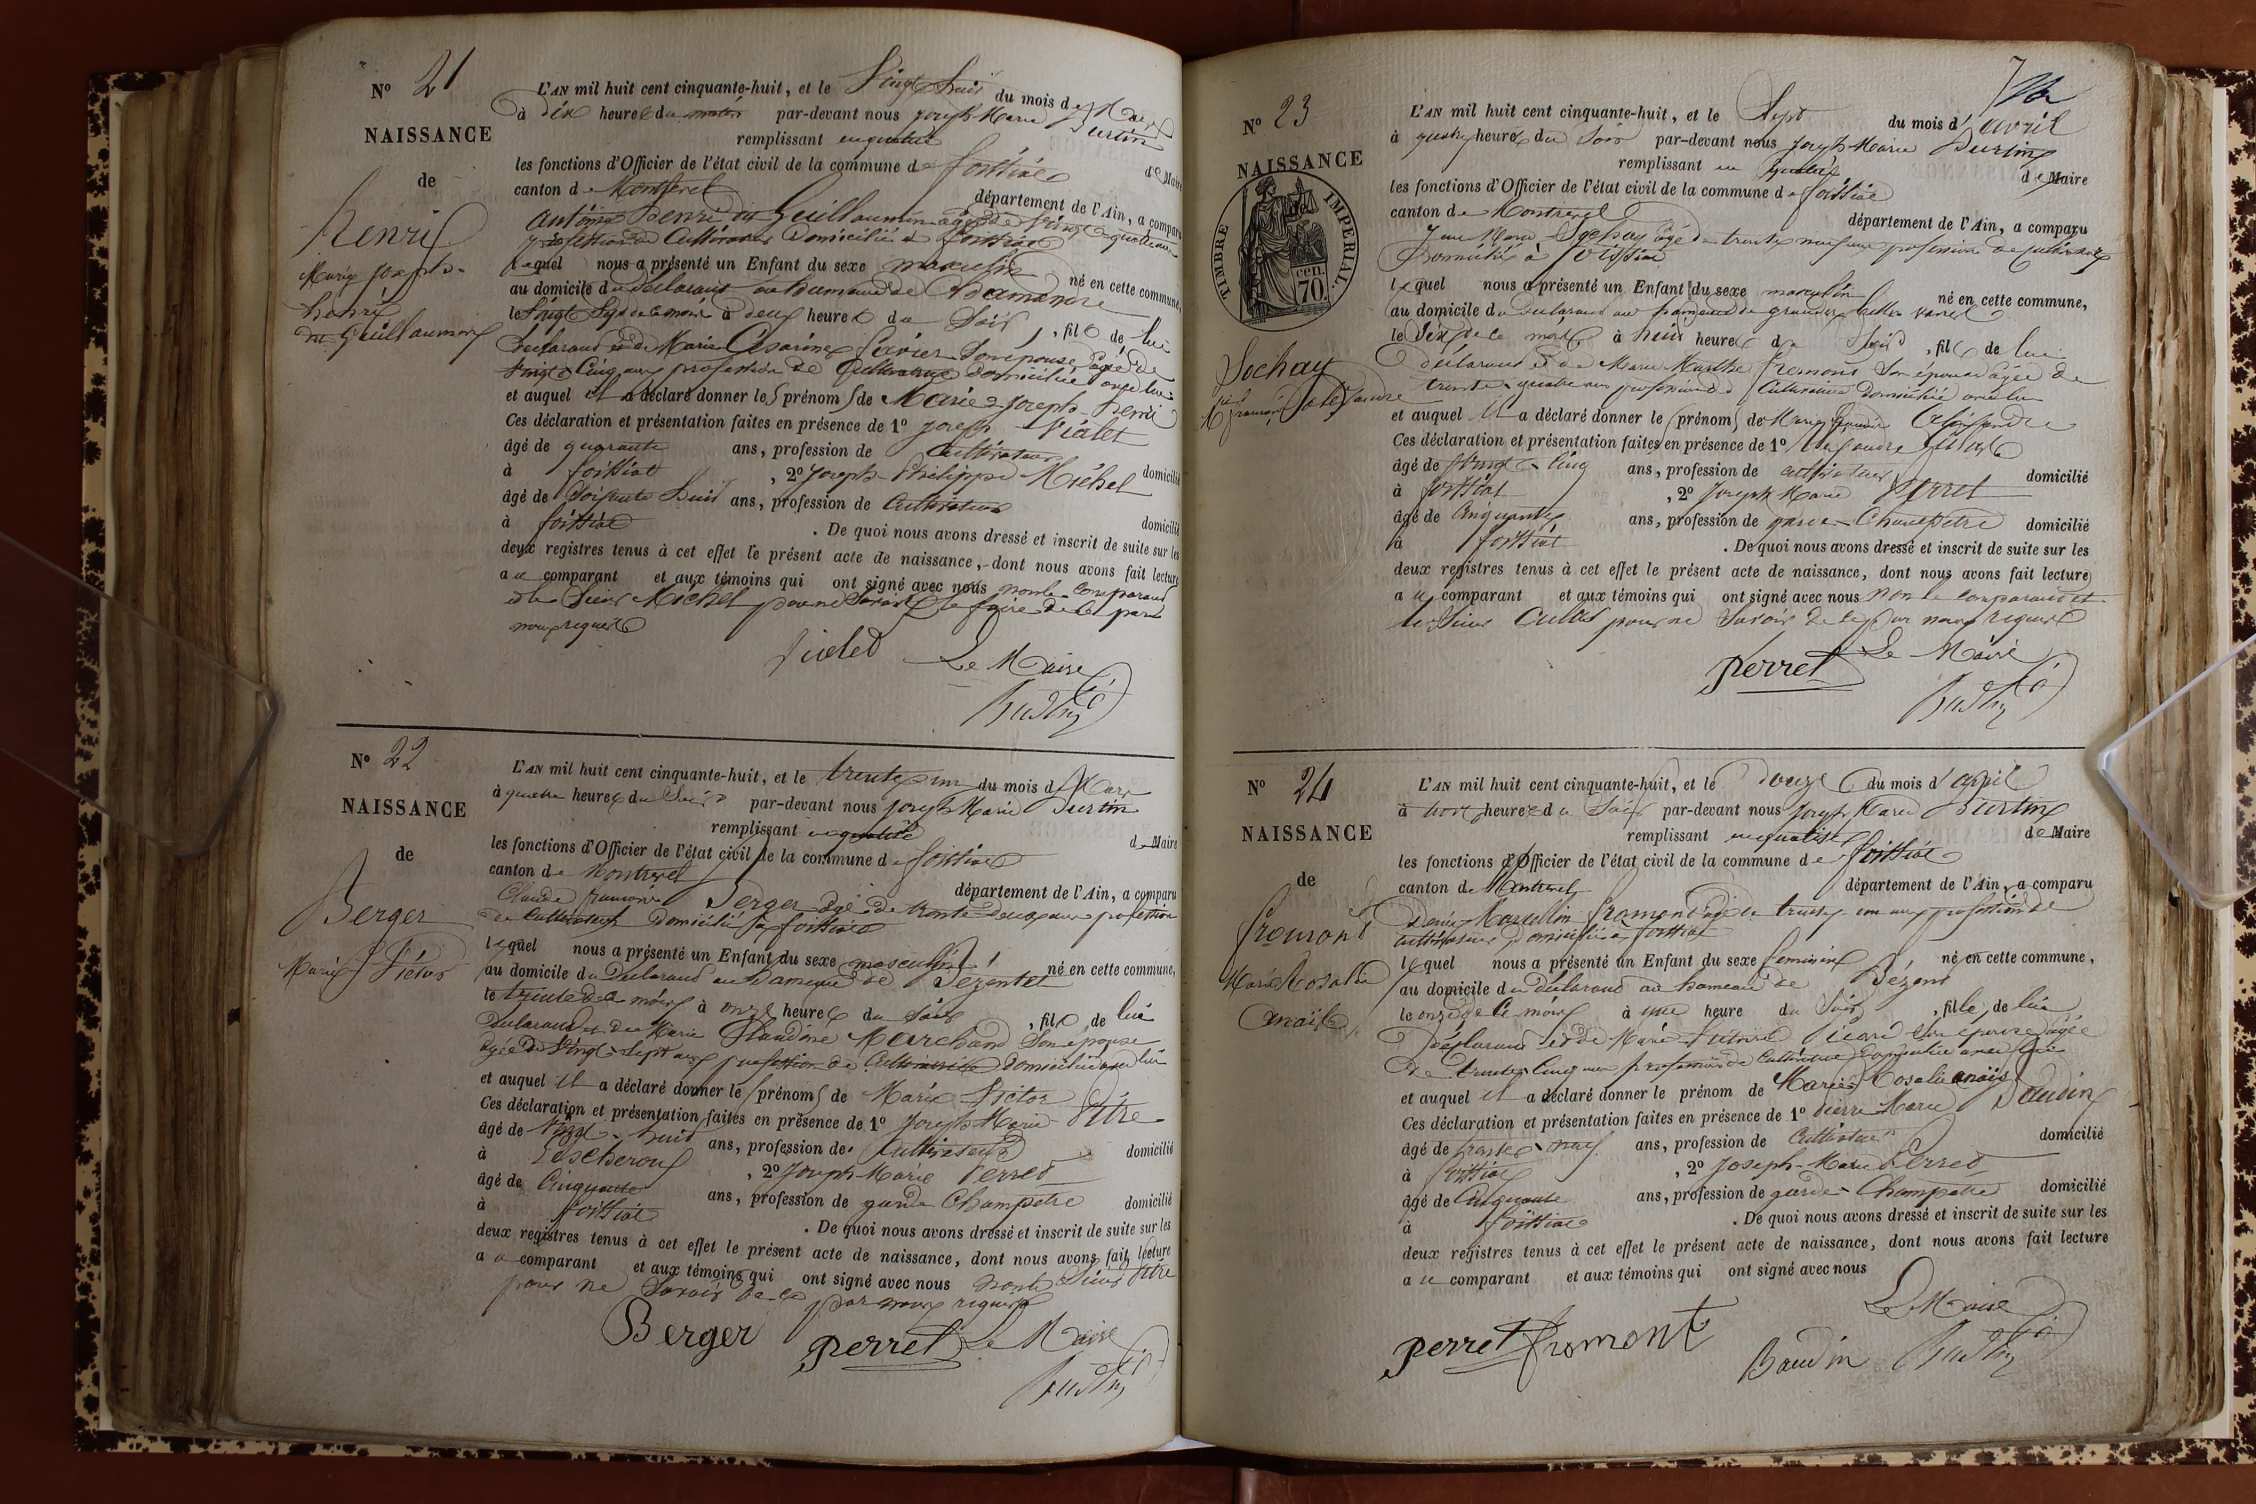 N° 21
NAISSANCE
de
henri
Marie joseph
henri
dit Guillaumin
L'AN mil huit cent cinquante-huit, et le Vingt huit du mois de Mars
à dix heures du matin par-devant nous joseph Marie Burtin
remplissant en qualité de Maire
les fonctions d'Officier de l'état civil de la commune de foissiat
canton de Montrevel département de l'Ain, a comparu
antoine henri dit Guillaumin âgé de Vingt quatre ans
profession de Cultivateur domicilié à foissiat
lequel nous a présenté un Enfant du sexe masculin né en cette commune,
au domicile du déclarant au hameau de
le Vingt Sept de ce mois à deux heures du Soir, fils de lui
déclarant et de Marie Césarine favier Son épouse âgée de
Vingt Cinq ans profession de Cultivatrice domiciliée avec lui
et auquel il a déclaré donner les prénoms de Marie Joseph henri
Ces déclaration et présentation faites en présence de 1° joseph Violet
âgé de quarante ans, profession de Cultivateur domicilié
à foissiat, 2° Joseph Philippe Michel
âgé de Soixante huit ans, profession de Cultivateur domicilié
à foissiat. De quoi nous avons dressé et inscrit de suite sur les
deux registres tenus à cet effet le présent acte de naissance, dont nous avons fait lecture
au comparant et aux témoins qui ont signé avec nous non le comparant
et le Sieur Michel pour ne Savoir le faire de ce par
nous requis
Violet Le Maire
Burtin
N° 22
NAISSANCE
de
Berger
Marie Victor
L'AN mil huit cent cinquante-huit, et le trente un du mois de Mars
à quatre heures du Soir par-devant nous joseph Marie Burtin
remplissant en qualité de Maire
les fonctions d'Officier de l'état civil de la commune de foissiat
canton de Montrevel département de l'Ain, a comparu
Claude françois Berger âgé de trente deux ans profession
de Cultivateur domicilié à foissiat
lequel nous a présenté un Enfant du sexe masculin né en cette commune,
au domicile du Déclarant au hameau de Bezentet
le trente de ce mois à onze heures du Soir, fils de lui
déclarant et de Marie Claudine Marchand Son épouse
âgée de Vingt Sept ans profession de Cultivatrice domiciliée avec lui
et auquel il a déclaré donner les prénoms de Marie Victor
Ces déclaration et présentation faites en présence de 1° Joseph Marie Pitre
âgé de Vingt huit ans, profession de Cultivateur domicilié
à Lescheroux, 2° Joseph Marie Perret
âgé de Cinquante ans, profession de garde Champetre domicilié
à foissiat. De quoi nous avons dressé et inscrit de suite sur les
deux registres tenus à cet effet le présent acte de naissance, dont nous avons fait lecture
au comparant et aux témoins qui ont signé avec nous non le Sieur Pitre
pour ne Savoir de ce par nous requis
Berger perret Le Maire
Burtin
N° 23
NAISSANCE
de
TIMBRE IMPERIAL
70 cen.
Sochay
françois
L'AN mil huit cent cinquante-huit, et le Sept du mois d'avril
à quatre heures du Soir par-devant nous Joseph Marie Burtin
remplissant en qualité de Maire
les fonctions d'Officier de l'état civil de la commune de foissiat
canton de Montrevel département de l'Ain, a comparu
Jean Marie Sochay âgé de trente neuf ans profession de Cultivateur
domicilié à foissiat
lequel nous a présenté un Enfant du sexe masculin né en cette commune,
au domicile du Déclarant au hameau de
le Six de ce mois à huit heures du Soir, fils de lui
déclarant et de Marie Marthe fremont Son épouse âgée de
trente quatre ans profession de Cultivatrice domiciliée avec lui
et auquel il a déclaré donner les prénoms de Marie françois
Ces déclaration et présentation faites en présence de 1°
âgé de Vingt Cinq ans, profession de cultivateur domicilié
à foissiat, 2° Joseph Marie Perret
âgé de Cinquante ans, profession de garde Champetre domicilié
à foissiat. De quoi nous avons dressé et inscrit de suite sur les
deux registres tenus à cet effet le présent acte de naissance, dont nous avons fait lecture
au comparant et aux témoins qui ont signé avec nous non le comparant et
le Sieur pour ne Savoir de ce par nous requis
perret Le Maire
Burtin
N° 24
NAISSANCE
de
fromont
Marie Rosalie
anaïs
L'AN mil huit cent cinquante-huit, et le douze du mois d'avril
à trois heures du Soir par-devant nous Joseph Marie Burtin
remplissant en qualité de Maire
les fonctions d'Officier de l'état civil de la commune de foissiat
canton de Montrevel département de l'Ain, a comparu
Denis Marcellin fromont âgé de trente un ans profession de
cultivateur domicilié à foissiat
lequel nous a présenté un Enfant du sexe feminin né en cette commune,
au domicile du déclarant au hameau de Bézent
le onze de ce mois à une heure du Soir, fille de lui
déclarant et de Marie Picard Son épouse âgée
de trente Cinq ans profession de Cultivatrice domiciliée avec lui
et auquel il a déclaré donner le prénom de Marie Rosalie anaïs
Ces déclaration et présentation faites en présence de 1° Pierre Marie Baudin
âgé de trente neuf ans, profession de Cultivateur domicilié
à foissiat, 2° Joseph Marie Perret
âgé de Cinquante ans, profession de garde Champetre domicilié
à foissiat. De quoi nous avons dressé et inscrit de suite sur les
deux registres tenus à cet effet le présent acte de naissance, dont nous avons fait lecture
au comparant et aux témoins qui ont signé avec nous
Le Maire
perret fromont Baudin Burtin